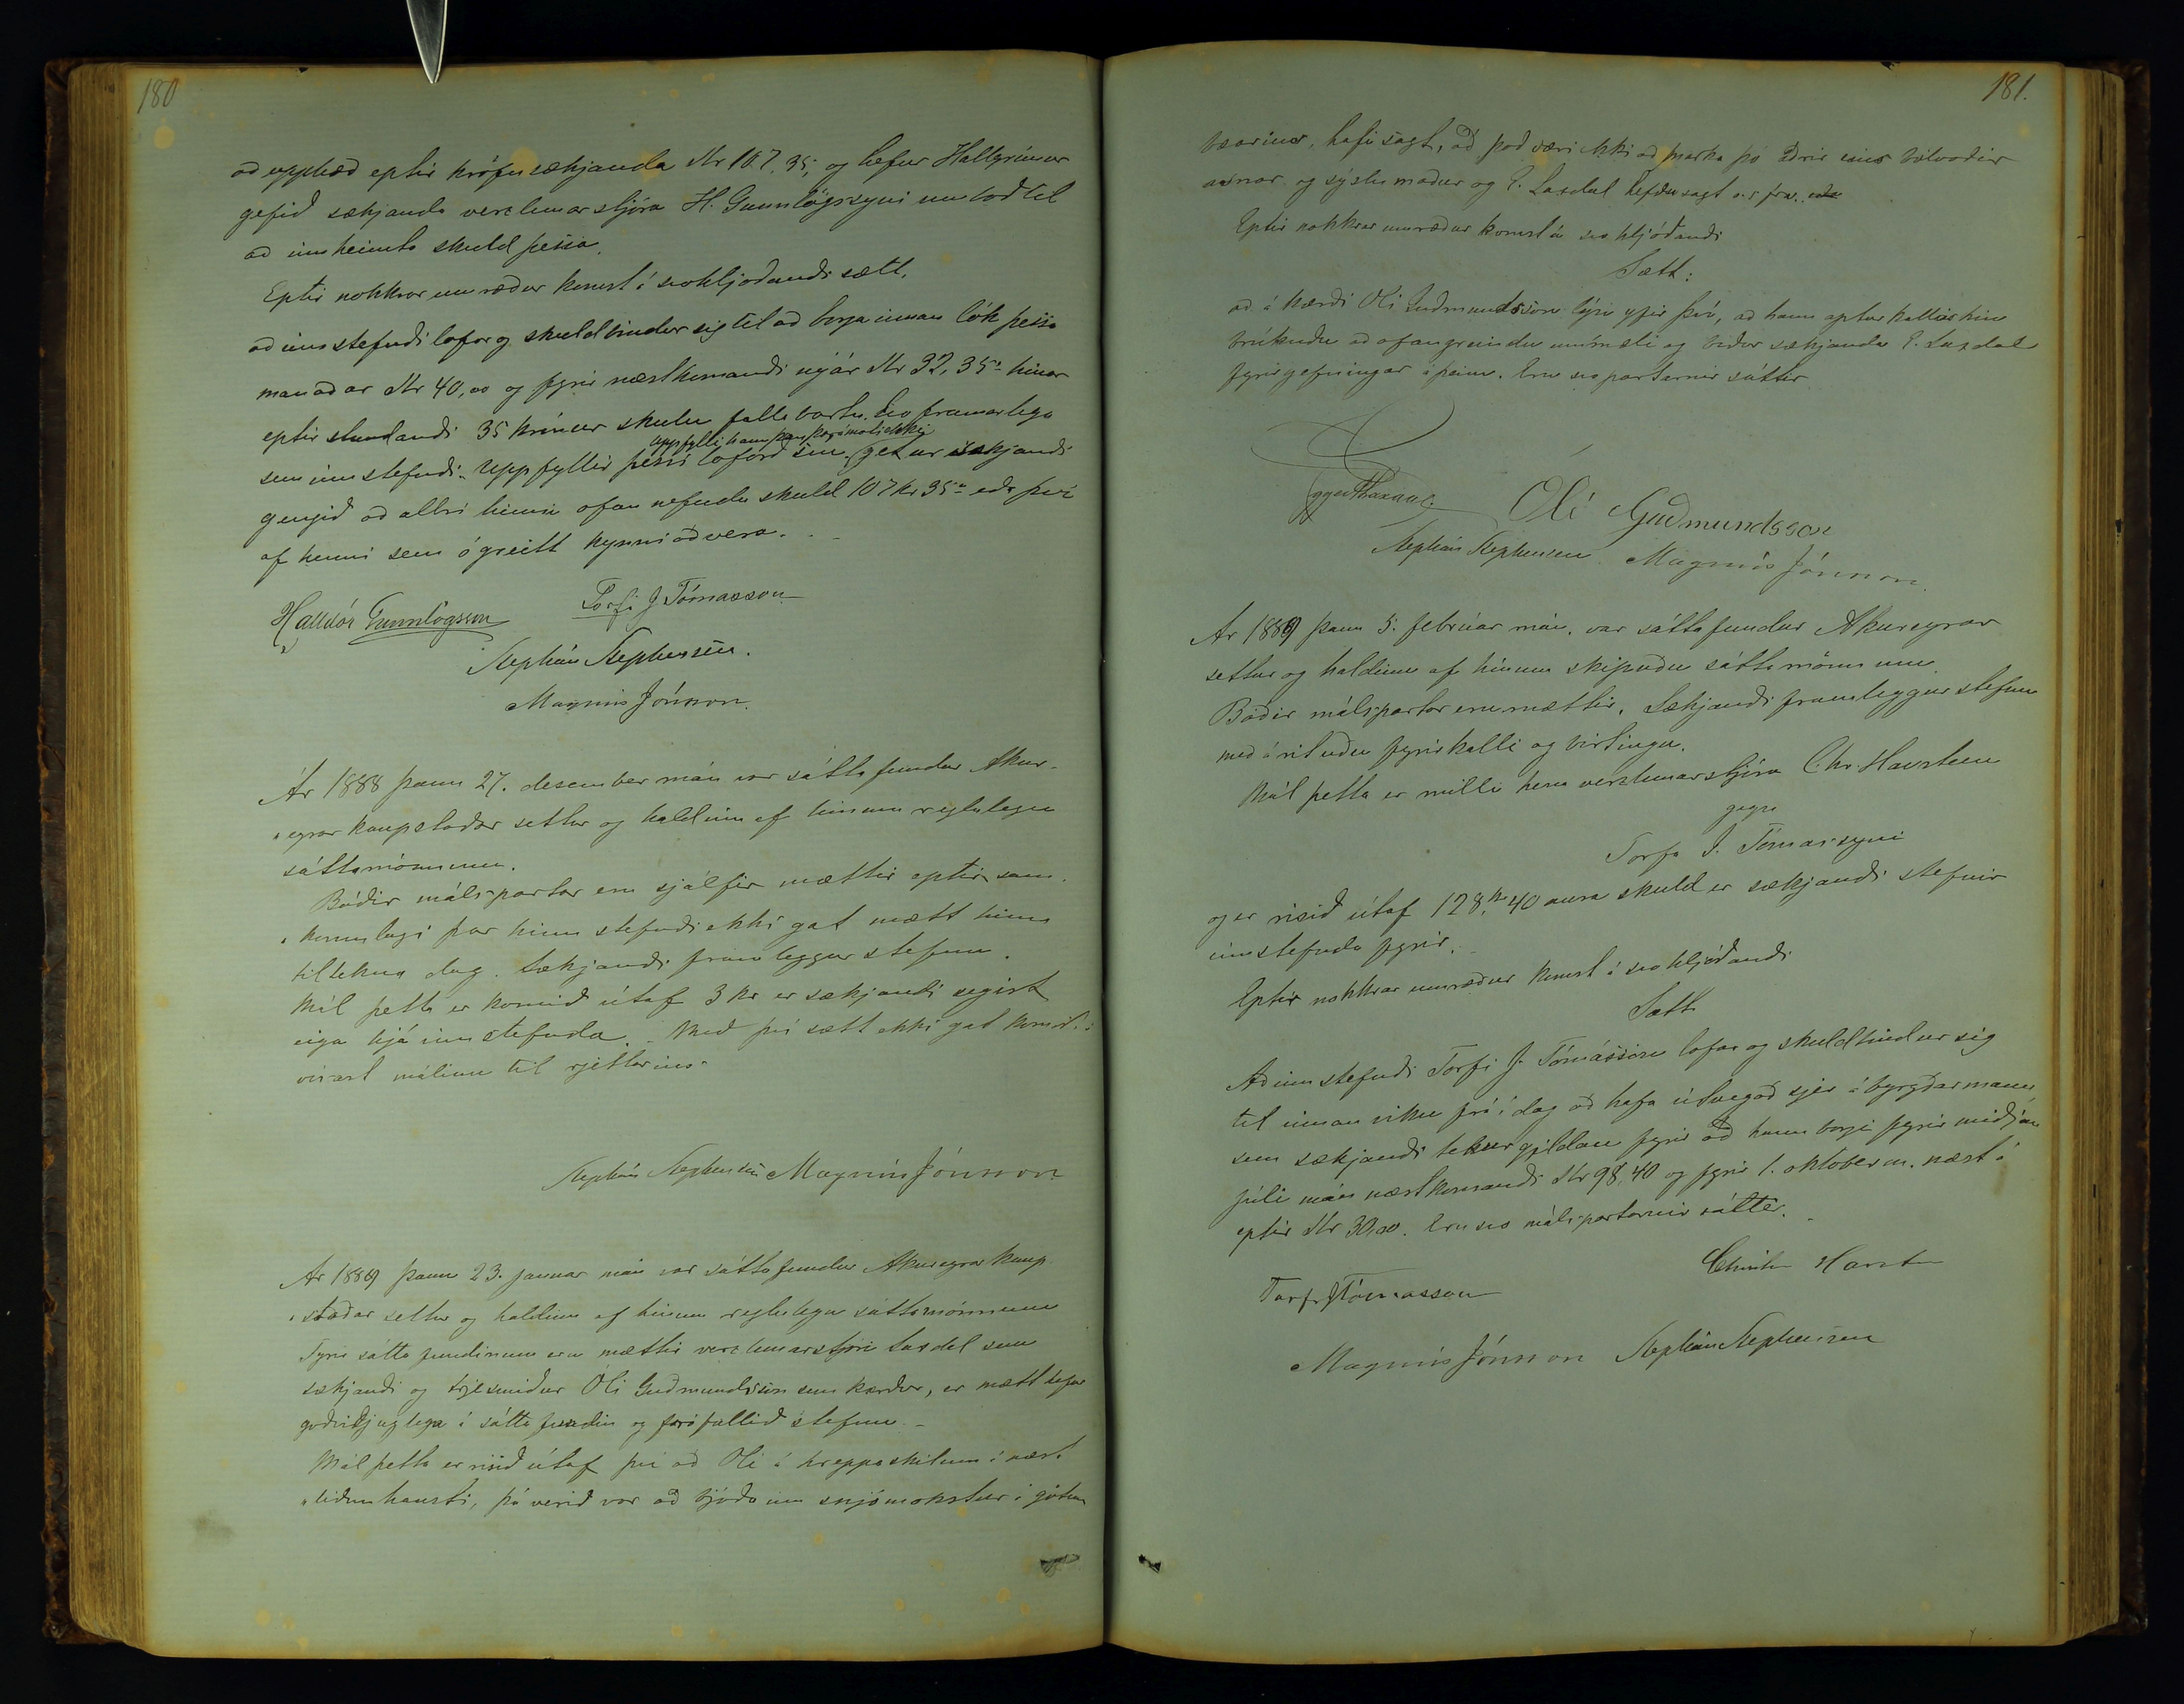 180
að upphæð eptir kröfu sækjanda Kr 107,35, og hefur Hallgrímur
gefið sækjanda verzlunarstjóra H. Gunnlögssyni umboð til
að innheimta skuld þessa.
Eptir nokkrar umræður komst á svohljóðandi sætt,
að innstefndi lofar og skuldbindur sig til að borga innan lok þessa
mánaðar Kr 40,00 og fyrir næstkomandi nýár Kr 32,35 a hinar
eptirstandandi 35 krónur skulu falla burtu. Svo framarlega
sem innstefndi uppfyllir þessi loforð sín, getur sækjandi
uppfylli hann þar á móti ekki
gengið að allri hinni ofannefndu skuld 107 kr 35 a eða því
af henni sem ógreitt kynni að vera.
Halldór Gunnlögsson Torfi J Tómasson
Stephán Stephensen.
Magnús Jónsson.
Ár 1888 þann 27. desember mán var sáttafundur Akur-
eyrar kaupstaðar settur og haldinn af hinum reglulegu
sáttamönnum.
Báðir málspartar eru sjálfir mættir eptir sam-
komulagi þar hinn stefndi ekki gat mætt hinn
tiltekna dag. Sækjandi framleggur stefnu.
Mál þetta er komið útaf 3 kr er sækjandi segist
eiga hjá innstefnda. Með því sætt ekki gat komist á
vísast málinu til rjettarins.
Stephán Stephensen Magnús Jónsson
Ár 1889 þann 23. januar mán var sáttafundur Akureyrar kaup-
staðar settur og haldinn af hinum reglulegu sáttamönnum
Fyrir sáttafundinum eru mættir verzlunarstjóri Laxdal sem
sækjandi og trjesmiður Óli Guðmundsson sem kærður, er mætt hefur
góðviljuglega á sáttafundin og fráfallið stefnu.
Mál þetta er risið útaf því að Óli á hreppaskilum í næst-
liðnu hausti, þá verið var að bjóða inn snjómokstur á götum
181.
bæarins, hafi sagt, að það væri ekki að marka þó aðrir eins bölvaðir
asnar og sýslumaður og E. Laxdal hefðu sagt
Eptir nokkrar umræður komst á svohljóðandi
Sætt:
að ákærði Óli Guðmundsson lýsir yfir því, að hann apturkallar hin
brúkuðu að ofangreindu ummæli og biður sækjanda E. Laxdal
fyrirgefningar á þeim. Eru svo partarnir sáttir
Eggert Laxdal Óli Guðmundsson
Stephán Stephensen Magnús Jónsson
Ár 1889 þann 5. febrúar mán. var sáttafundur Akureyrar
settur og haldinn af hinum skipuðu sáttamönnum
Báðir málspartar eru mættir. Sækjandi framleggur stefnu
með árituðu fyrirkalli og birtingu.
Mál þetta er milli herra verzlunarstjóra Chr. Havsteen
gegn
Torfa J. Tómassyni
og er risið útaf 128 kr 40 aura skuld er sækjandi stefnir
innstefnda fyrir.
Eptir nokkrar umræður komst á svohljóðandi
Sætt
Að innstefndi Torfi J. Tómásson lofar og skuldbindur sig
til innan viku frá í dag að hafa útvegað sjer ábyrgðarmann
sem sækjandi tekur gildan fyrir að hann borgi fyrir miðjan
júlí mán næstkomandi Kr 98,40 og fyrir 1. oktober m. næst á
eptir Kr 30,00. Eru svo málspartarnir sáttir.
Christen Havsteen
Torfi J Tómasson
Magnús Jónsson Stephán Stephensen